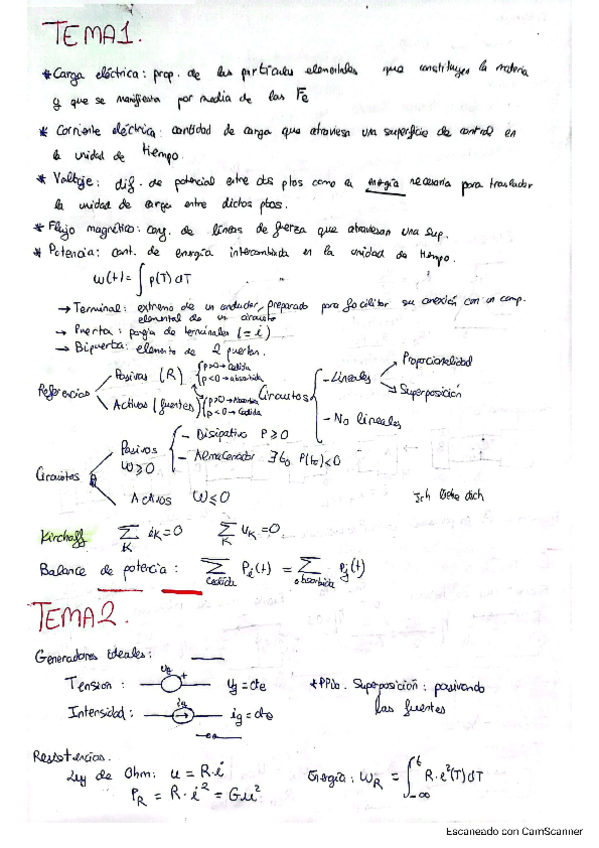 TEMA 1.
* Carga eléctrica: prop. de las partículas elementales que constituyen la materia
y que se manifiesta por media de las Fe
* Corriente eléctrica: cantidad de carga que atraviesa una superficie de control en
la unidad de tiempo.
* Voltaje: dif. de potencial entre dos ptos como la energía necesaria para trasladar
la unidad de carga entre dichos ptos.
* Flujo magnético: conj. de líneas de fuerza que atraviesan una sup.
* Potencia: cant. de energía intercambiada en la unidad de tiempo.
w(t) = ∫ p(T) dT
→ Terminal: extremo de un conductor, preparado para facilitar su conexión con un comp.
elemental de un circuito
→ Puerta: pareja de terminales (= i)
→ Bipuerta: elemento de 2 puertas.
Referencias
Pasivas (R) { p>0 → Cedida
p<0 → absorbida
Activas (fuentes) { p>0 → Absorbe
p<0 → Cedida
Circuitos
- Lineales
Proporcionalidad
Superposición
- No lineales
Circuitos
Pasivos
W ≥ 0
- Disipativo P ≥ 0
- Almacenador ∃ t₀ P(t₀) < 0
Activos W ≤ 0
Ich liebe dich
Kirchoff Σ_K i_K = 0 Σ_K u_K = 0
Balance de potencia: Σ_cedida P_i(t) = Σ_absorbida P_j(t)
TEMA 2.
Generadores Ideales:
Tension: u_g + u_g = cte
*PPio. Superposición: pasivando
las fuentes
Intensidad: i_g i_g = cte
Resistencias.
Ley de Ohm: u = R·i
P_R = R·i² = Gu²
Energía: W_R = ∫_{-∞}^{t} R·i²(T) dT
Escaneado con CamScanner